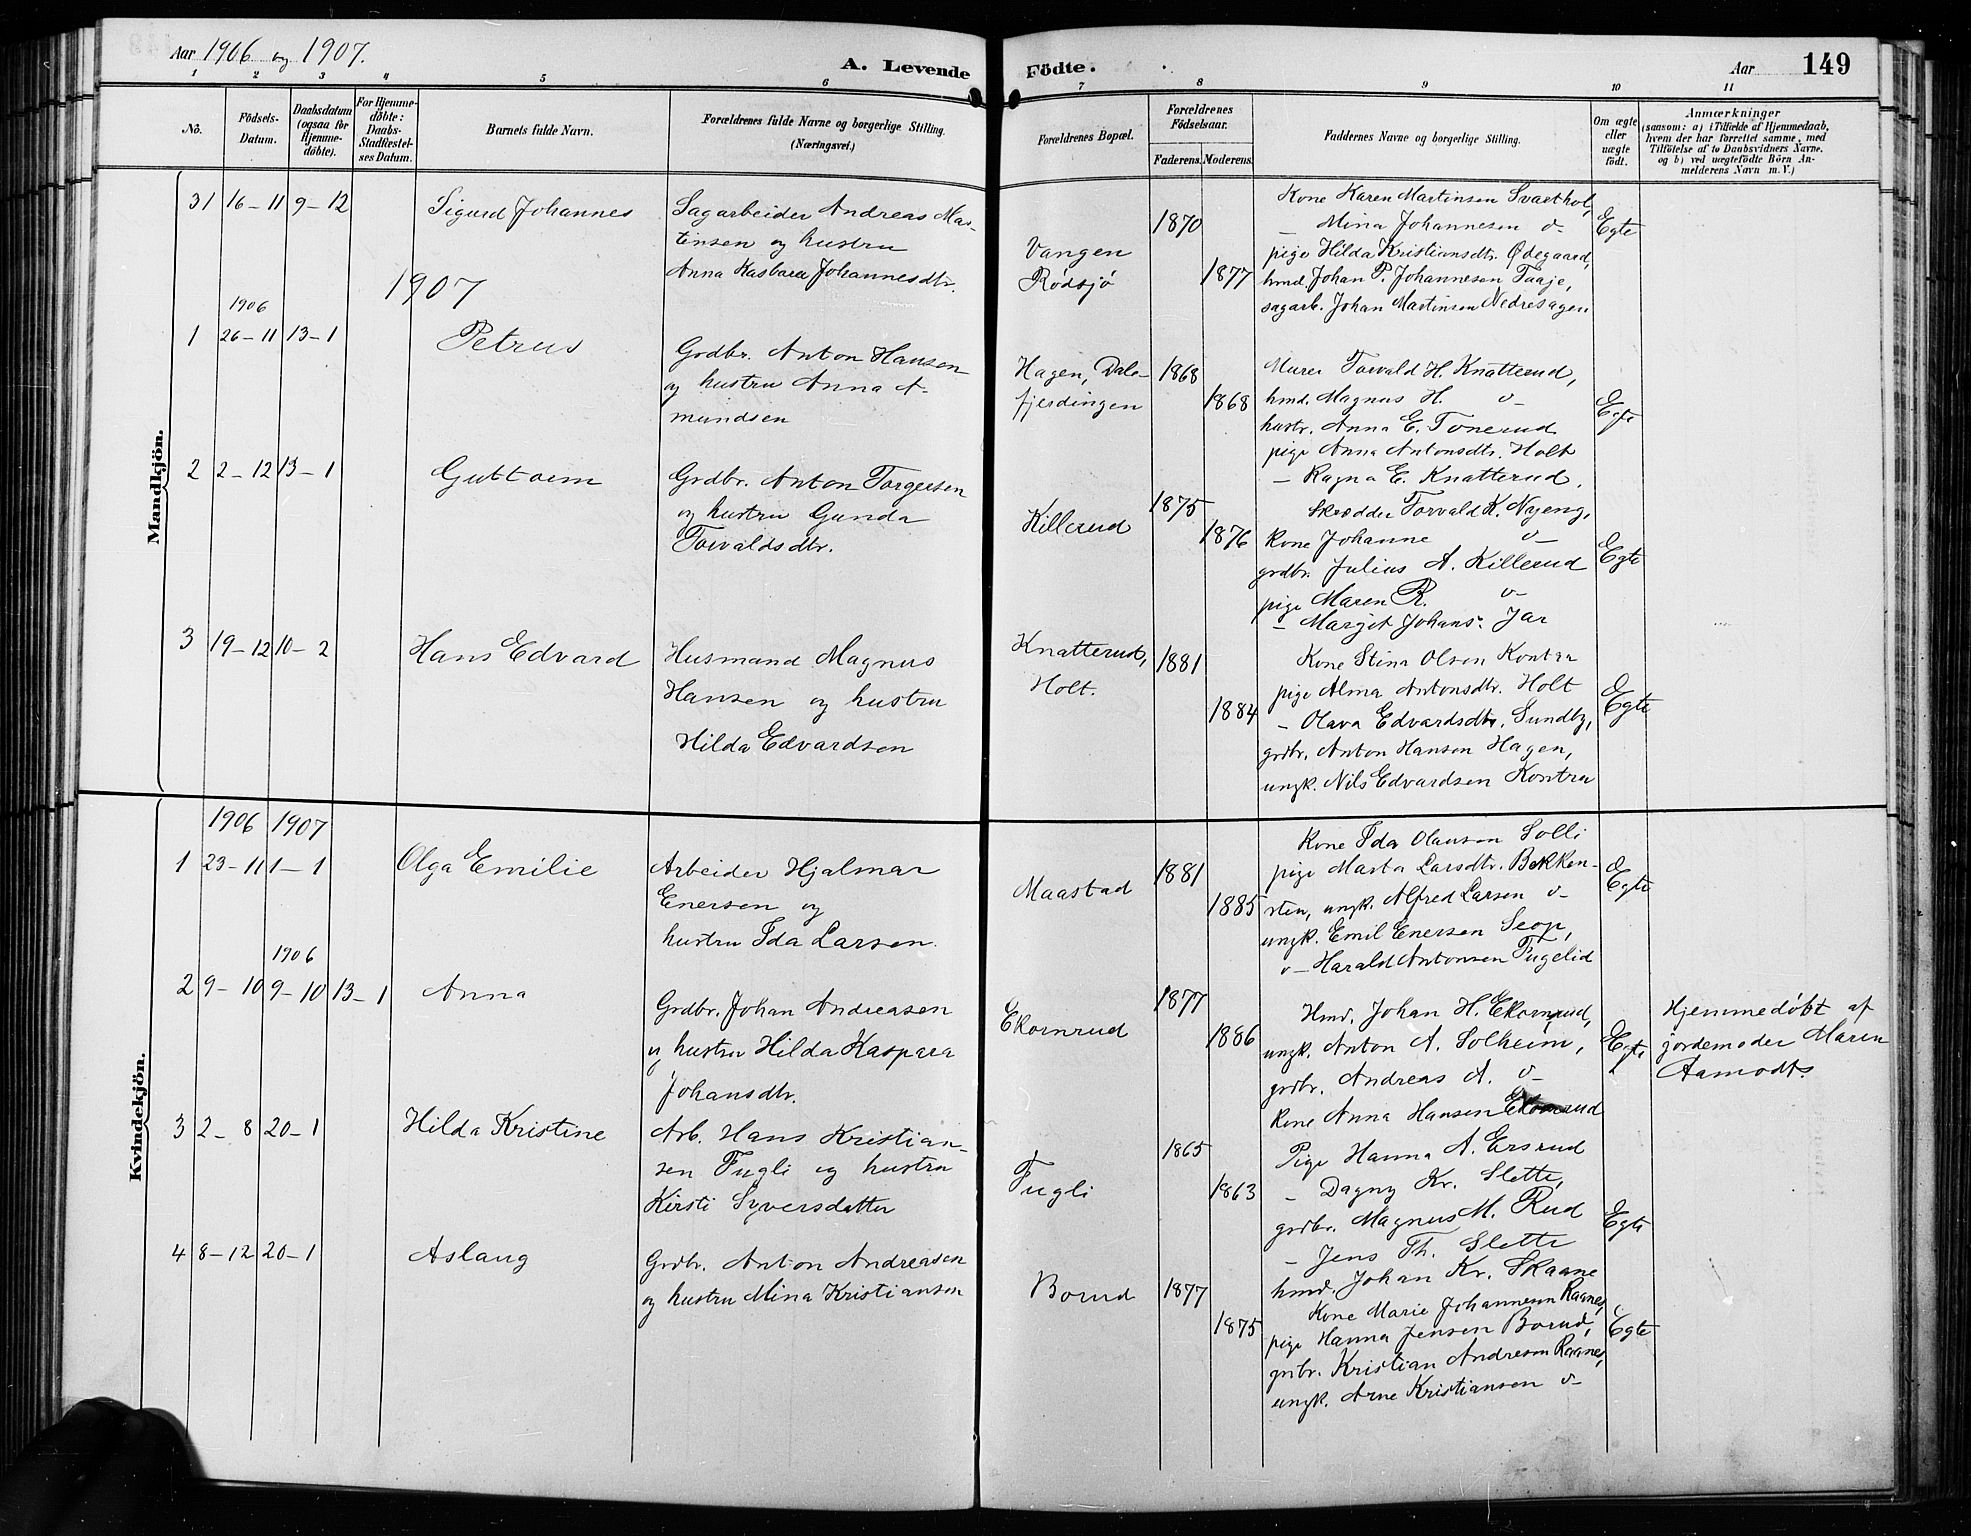 Aar 1906 og 1907.
A. Levende Födte.
Aar 149
1 2 3 4 5 6 7 8 9 10 11
No.
Födsels-
Datum.
Daabsdatum
(ogsaa for
Hjemme-
döbte).
For Hjemme-
döbte:
Daabs-
Stadfæstel-
ses Datum.
Barnets fulde Navn.
Forældrenes fulde Navne og borgerlige Stilling.
(Næringsvei.)
Forældrenes Bopæl.
Forældrenes
Födselsaar.
Faderens. Moderens.
Faddernes Navne og borgerlige Stilling.
Om ægte
eller
uægte
födt.
Anmærkninger
(saasom: a) i Tilfælde af Hjemmedaab,
hvem der har forrettet samme, med
Tilföielse af to Daabsvidners Navne.
og b) ved uægtefödte Börn An-
melderens Navn m. V.)
Mandkjön.
31 16-11 9-12 Sigurd Johannes
Sagarbeider Andreas Mar-
tinsen og hustru
Anna Kasbara Johannesdtr.
Vangen
Rødsjø
1870
1877
Kone Karen Martinsen Svarthol,
— Mina Johannesen o-
pige Hilda Kristiansdtr. Ødegaard,
hmd. Johan P. Johannesen Taaje,
sagarb. Johan Martinsen Nedresagen
Egte
1907
1906
1 26-11 13-1 Petrus
Grdbr. Anton Hansen
og hustru Anna A-
mundsen
Hagen, Dale-
fjerdingen
1868
1868
Murer Torvald H. Knatterud,
hmd. Magnus H. o-
hustr. Anna E. Tonerud
pige Anna Antonsdtr. Holt
— Ragna E. Knatterud.
Egte
2 2-12 13-1 Guttorm
Grdbr. Anton Torgersen
og hustru Gunda
Torvaldsdtr.
Killerud
1875
1876
Skrædder Torvald K. Nyeng,
Kone Johanne o-
grdbr. Julius A. Killerud
pige Maren R. o-
— Margit Johans. Jar
Egte
3 19-12 10-2 Hans Edvard
Husmand Magnus
Hansen og hustru
Hilda Edvardsen
Knatterud,
Holt.
1881
1884
Kone Stina Olsen Kontra
pige Alma Antonsdtr. Holt
— Olava Edvardsdtr. Sundby,
grdbr. Anton Hansen Hagen,
ungk. Nils Edvardsen Kontra
Egte
Kvindekjön.
1906 1907
1 23-11 1-1 Olga Emilie
Arbeider Hjalmar
Enersen og
hustru Ida Larsen.
Maastad
1881
1885
Kone Ida Olausen Solli
pige Marta Larsdtr. Bækken-
sten, ungk. Alfred Larsen o-
ungk. Emil Enersen Seop,
o- Harald Antonsen Fugelid
Egte
1906
2 9-10 9-10 13-1 Anna
Grdbr. Johan Andreasen
og hustru Hilda Kaspara
Johansdtr.
Ekornrud
1877
1886
Hmd. Johan H. Ekornrud,
ungk. Anton A. Solheim,
grdbr. Andreas A. o-
Kone Anna Hansen Ekornrud
Egte
Hjemmedøbt af
jordemoder Maren
Aamodt.
3 2-8 20-1 Hilda Kristine
Arb. Hans Kristian-
sen Fugli og hustru
Kirsti Syversdatter
Fugli
1865
1863
Pige Hanna A. Ersrud
— Dagny Kr. Slette,
grdbr. Magnus M. Rud
— Jens Th. Slette
hmd. Johan Kr. Skaane
Egte
4 8-12 20-1 Aslaug
Grdbr. Anton Andreasen
og hustru Mina Kristiansen
Borud
1877
1875
Kone Marie Johannesen Raanes,
pige Hanna Jensen Borud,
grbr. Kristian Andresen Raanes,
ungk. Arne Kristiansen o-
Egte